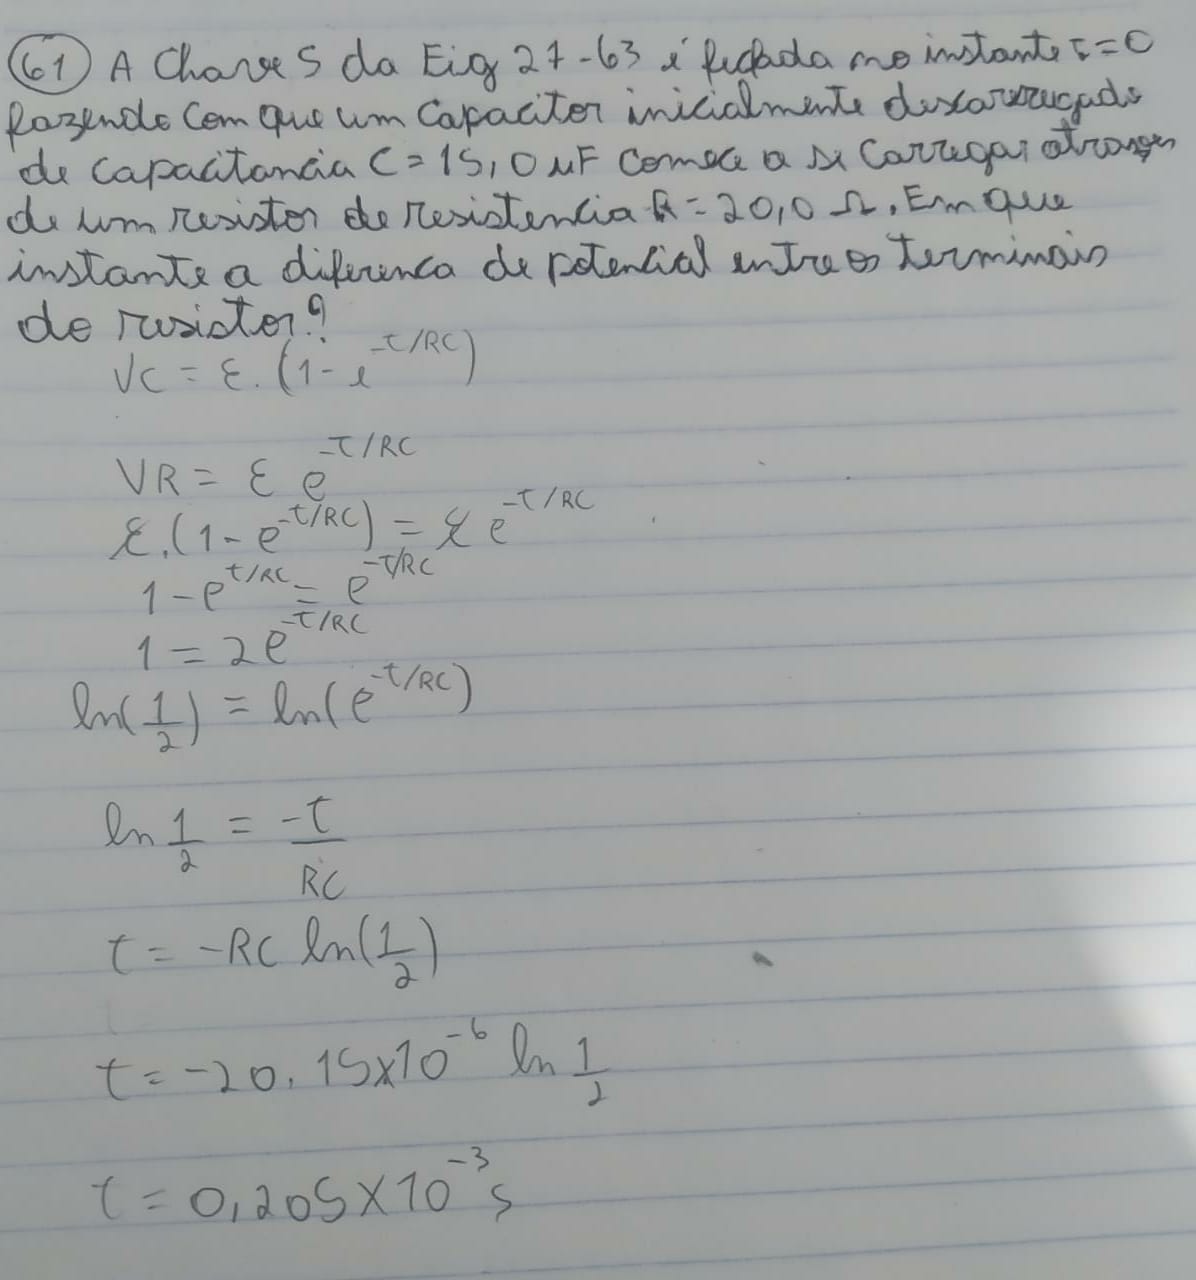 61 A Chave S da Fig 27-63 é fechada no instante t=0
fazendo com que um Capacitor inicialmente descarregado
de capacitância C = 15,0 µF comece a se Carregar atraves
de um resistor de resistencia R = 20,0 Ω. Em que
instante a diferenca de potencial entre os terminais
do resistor?
VC = ε. (1 - e^-t/RC)
VR = ε e^-t/RC
ε.(1 - e^-t/RC) = ε e^-t/RC
1 - e^t/RC = e^-t/RC
1 = 2e^-t/RC
ln(1/2) = ln(e^-t/RC)
ln 1/2 = -t/RC
t = -RC ln(1/2)
t = -20. 15x10^-6 ln 1/2
t = 0,205 X 10^-3 s